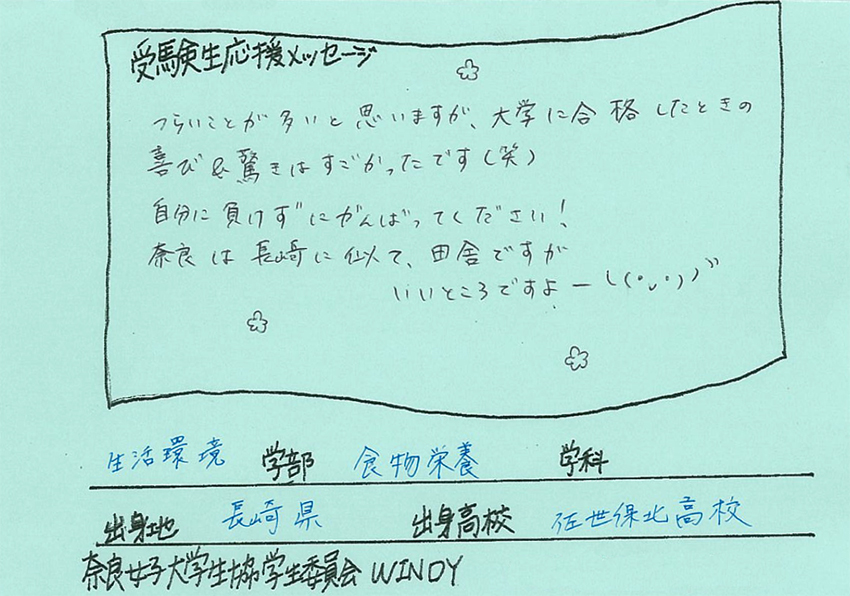 受験生応援メッセージ
つらいことが多いと思いますが、大学に合格したときの
喜び&驚きはすごかったです(笑)
自分に負けずにがんばってください!
奈良は長崎に似て、田舎ですが
いいところですよー╰(°ᴗ°)"
生活環境 学部 食物栄養 学科
出身地 長崎県 出身高校 佐世保北高校
奈良女子大学生協学生委員会 WINDY